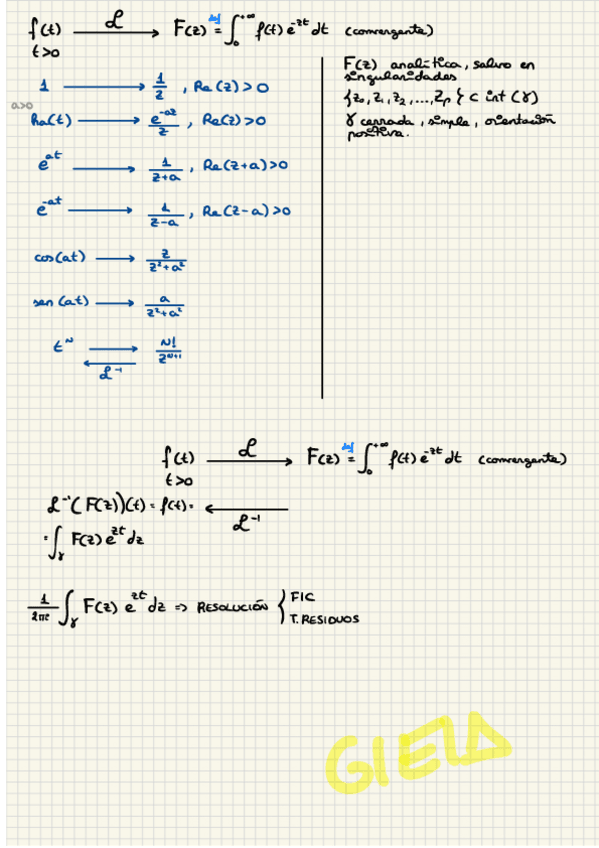 f(t) ℒ→ F(z) def= ∫₀^{+∞} f(t) e^{-zt} dt (convergente)
t>0
1 → 1/z , Re(z)>0
a>0
ha(t) → e^{-az}/z , Re(z)>0
e^{at} → 1/(z+a) , Re(z+a)>0
e^{-at} → 1/(z-a) , Re(z-a)>0
cos(at) → z/(z²+a²)
sen(at) → a/(z²+a²)
t^N → N!/z^{N+1}
ℒ⁻¹
F(z) analítica, salvo en
singularidades
{z₀, z₁, z₂, ..., zₚ} ⊂ int(γ)
γ cerrada, simple, orientación
positiva.
f(t) ℒ→ F(z) def= ∫₀^{+∞} f(t) e^{-zt} dt (convergente)
t>0
ℒ⁻¹(F(z))(t) = f(t) = ← ℒ⁻¹
= ∫_γ F(z) e^{zt} dz
1/(2πi) ∫_γ F(z) e^{zt} dz => RESOLUCIÓN { FIC
T. RESIDUOS
GIEIA